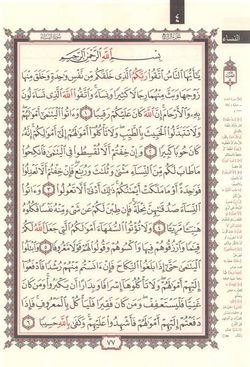 ٤
النساء
بِسْمِ اللَّهِ الرَّحْمَٰنِ الرَّحِيمِ
يَا أَيُّهَا النَّاسُ اتَّقُوا رَبَّكُمُ الَّذِي خَلَقَكُم مِّن نَّفْسٍ وَاحِدَةٍ وَخَلَقَ مِنْهَا
زَوْجَهَا وَبَثَّ مِنْهُمَا رِجَالًا كَثِيرًا وَنِسَاءً وَاتَّقُوا اللَّهَ الَّذِي تَسَاءَلُونَ
بِهِ وَالْأَرْحَامَ إِنَّ اللَّهَ كَانَ عَلَيْكُمْ رَقِيبًا ١ وَآتُوا الْيَتَامَىٰ أَمْوَالَهُمْ
وَلَا تَتَبَدَّلُوا الْخَبِيثَ بِالطَّيِّبِ وَلَا تَأْكُلُوا أَمْوَالَهُمْ إِلَىٰ أَمْوَالِكُمْ إِنَّهُ
كَانَ حُوبًا كَبِيرًا ٢ وَإِنْ خِفْتُمْ أَلَّا تُقْسِطُوا فِي الْيَتَامَىٰ فَانكِحُوا
مَا طَابَ لَكُم مِّنَ النِّسَاءِ مَثْنَىٰ وَثُلَاثَ وَرُبَاعَ فَإِنْ خِفْتُمْ أَلَّا تَعْدِلُوا
فَوَاحِدَةً أَوْ مَا مَلَكَتْ أَيْمَانُكُمْ ذَٰلِكَ أَدْنَىٰ أَلَّا تَعُولُوا ٣ وَآتُوا
النِّسَاءَ صَدُقَاتِهِنَّ نِحْلَةً فَإِن طِبْنَ لَكُمْ عَن شَيْءٍ مِّنْهُ نَفْسًا فَكُلُوهُ
هَنِيئًا مَّرِيئًا ٤ وَلَا تُؤْتُوا السُّفَهَاءَ أَمْوَالَكُمُ الَّتِي جَعَلَ اللَّهُ لَكُمْ
قِيَامًا وَارْزُقُوهُمْ فِيهَا وَاكْسُوهُمْ وَقُولُوا لَهُمْ قَوْلًا مَّعْرُوفًا ٥ وَابْتَلُوا
الْيَتَامَىٰ حَتَّىٰ إِذَا بَلَغُوا النِّكَاحَ فَإِنْ آنَسْتُم مِّنْهُمْ رُشْدًا فَادْفَعُوا
إِلَيْهِمْ أَمْوَالَهُمْ وَلَا تَأْكُلُوهَا إِسْرَافًا وَبِدَارًا أَن يَكْبَرُوا وَمَن كَانَ
غَنِيًّا فَلْيَسْتَعْفِفْ وَمَن كَانَ فَقِيرًا فَلْيَأْكُلْ بِالْمَعْرُوفِ فَإِذَا
دَفَعْتُمْ إِلَيْهِمْ أَمْوَالَهُمْ فَأَشْهِدُوا عَلَيْهِمْ وَكَفَىٰ بِاللَّهِ حَسِيبًا ٦
٧٧